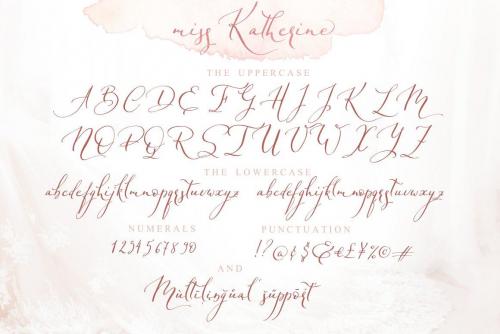 miss Katherine
THE UPPERCASE
A B C D E F G H I J K L M
N O P Q R S T U V W X Y Z
THE LOWERCASE
abcdefghijklmnopqrstuvwxyz abcdefghijklmnopqrstuvwxyz
NUMERALS PUNCTUATION
1234567890 !?@¢$&€£¥%©#
AND
Multilingual support